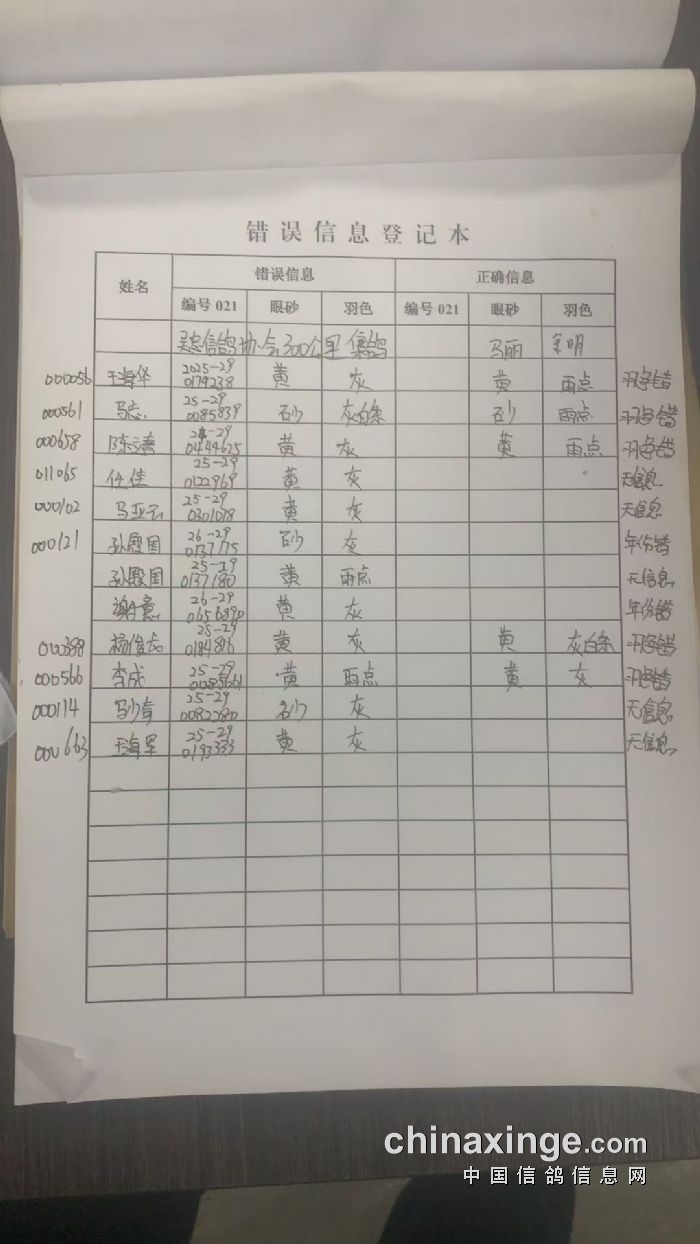 错误信息登记本
姓名 错误信息 正确信息
编号021 眼砂 羽色 编号021 眼砂 羽色
吴忠信鸽协会300公里集鸽 马丽
000056 王海华 2025-29 0179238 黄 灰 黄 雨点 羽色错
000561 马志 25-29 0085839 砂 灰白条 砂 雨点 羽色错
000658 陈文清 -29 0444625 黄 灰 黄 雨点 羽色错
011065 任佳 25-29 0122969 黄 灰 无信息
000102 马亚云 25-29 黄 灰 无信息
000121 孙殿国 26-29 0137175 砂 灰 年份错
孙殿国 25-29 0137180 黄 雨点 无信息
26-29 黄 灰 年份错
杨俊龙 25-29 0184816 黄 灰 黄 灰白条 羽色错
000566 李成 25-29 0085661 黄 雨点 黄 灰 羽色错
000114 25-29 砂 灰 无信息
000663 王海军 25-29 0193333 黄 灰 无信息
chinaxinge.com
中国信鸽信息网